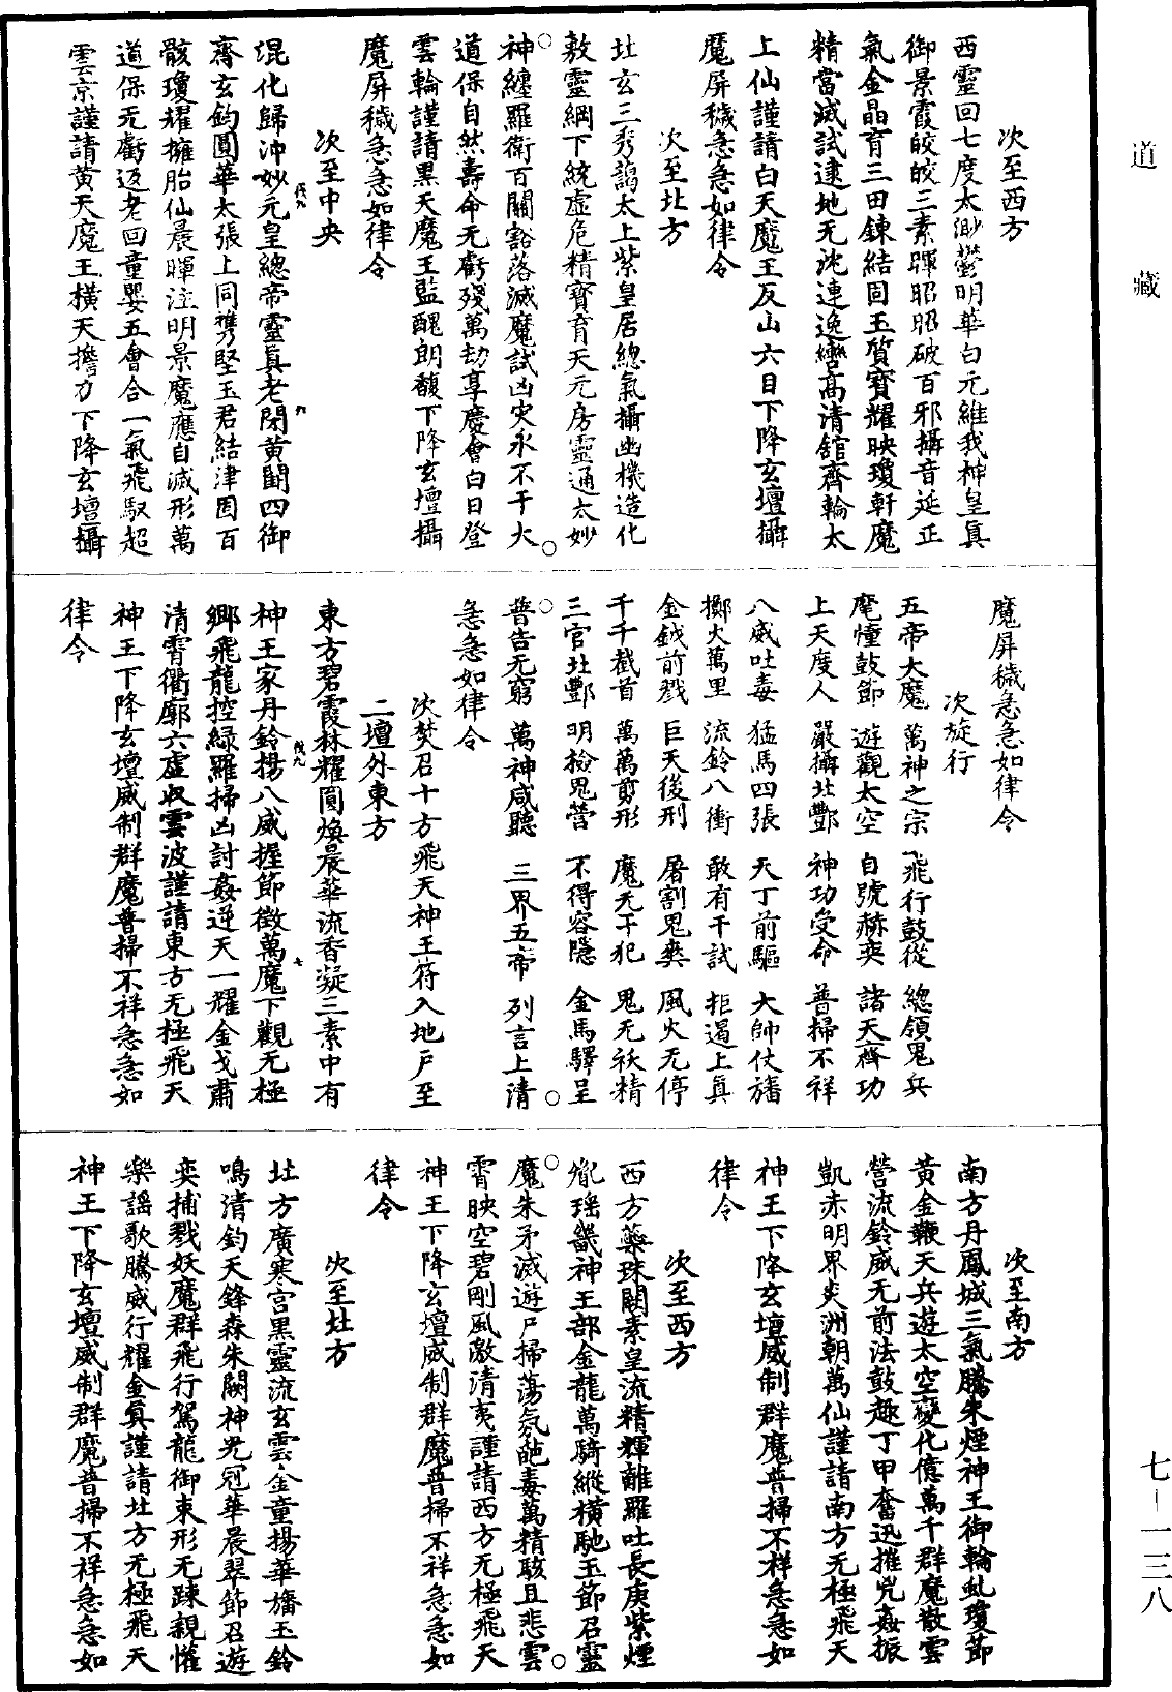 道藏
七-一三八
次至西方
西靈回七度太卿鬱明華白元維我神皇眞
御景霞皎皎三素暉昭昭破百邪攝音延正
氣金晶育三田鍊結固玉質寶耀映瓊軒魔
精當滅試逮地无沈連逸巒高清舘齊輪太
上仙謹請白天魔王反山六目下降玄壇攝
魔屏穢急急如律令
次至北方
北玄三秀藹太上紫皇居總氣攝幽機造化
敷靈綱下統虛危精寶育天元房靈通太妙
神纏羅衛百關豁落滅魔試凶灾永不干大
道保自然壽命无虧殘萬劫享慶會白日登
雲輪謹請黑天魔王監醜朗馥下降玄壇攝
魔屏穢急急如律令
次至中央
混化歸沖妙元皇總帝靈眞老閉黃閶四御
齊玄鈞圓華太張上同携堅玉君結津固百
骸瓊耀擁胎仙晨暉注明景魔應自滅形萬
道保无虧返老回童嬰五會合一氣飛馭超
雲京謹請黃天魔王橫天擔力下降玄壇攝
魔屏穢急急如律令
次旋行
五帝大魔 萬神之宗 飛行鼓從 總領鬼兵
麾幢鼓節 遊觀太空 自號赫奕 諸天齊功
上天度人 嚴攝北酆 神功受命 普掃不祥
八威吐毒 猛馬四張 天丁前驅 大帥仗旛
擲火萬里 流鈴八衝 敢有干試 拒遏上眞
金鉞前戮 巨天後刑 屠割鬼爽 風火无停
千千截首 萬萬剪形 魔无干犯 鬼无袄精
三官北酆 明撿鬼營 不得容隱 金馬驛呈
普告无窮 萬神咸聽 三界五帝 列言上清
急急如律令
次焚召十方飛天神王符入地戶至
二壇外東方
東方碧霞林耀圓煥晨華流香凝三素中有
神王家丹鈴揚八威握節徵萬魔下觀无極
鄉飛龍控綠羅掃凶討姦逆天一耀金戈肅
清霄衢廓六虛收雲波謹請東方无極飛天
神王下降玄壇威制群魔普掃不祥急急如
律令
次至南方
南方丹鳳城三氣騰朱煙神王御輪虬瓊節
黃金鞭天兵遊太空變化億萬千群魔散雲
營流鈴威无前法鼓趣丁甲奮迅摧兇姦振
凱赤明界炎洲朝萬仙謹請南方无極飛天
神王下降玄壇威制群魔普掃不祥急急如
律令
次至西方
西方藥珠闕素皇流精輝離羅吐長庚紫煙
毓瑶畿神王部金龍萬騎縱橫馳玉節召靈
魔朱矛滅遊尸掃蕩氛䰙毒萬精駭且悲雲
霄映空碧剛風激清夷謹請西方无極飛天
神王下降玄壇威制群魔普掃不祥急急如
律令
次至北方
北方廣寒宮黑靈流玄雲金童揚華旛玉鈴
鳴清鈞天鋒森朱闕神光冠華晨翠節召遊
奕捕戮妖魔群飛行駕龍御束形无踈親懽
樂謡歌騰威行耀金眞謹請北方无極飛天
神王下降玄壇威制群魔普掃不祥急急如